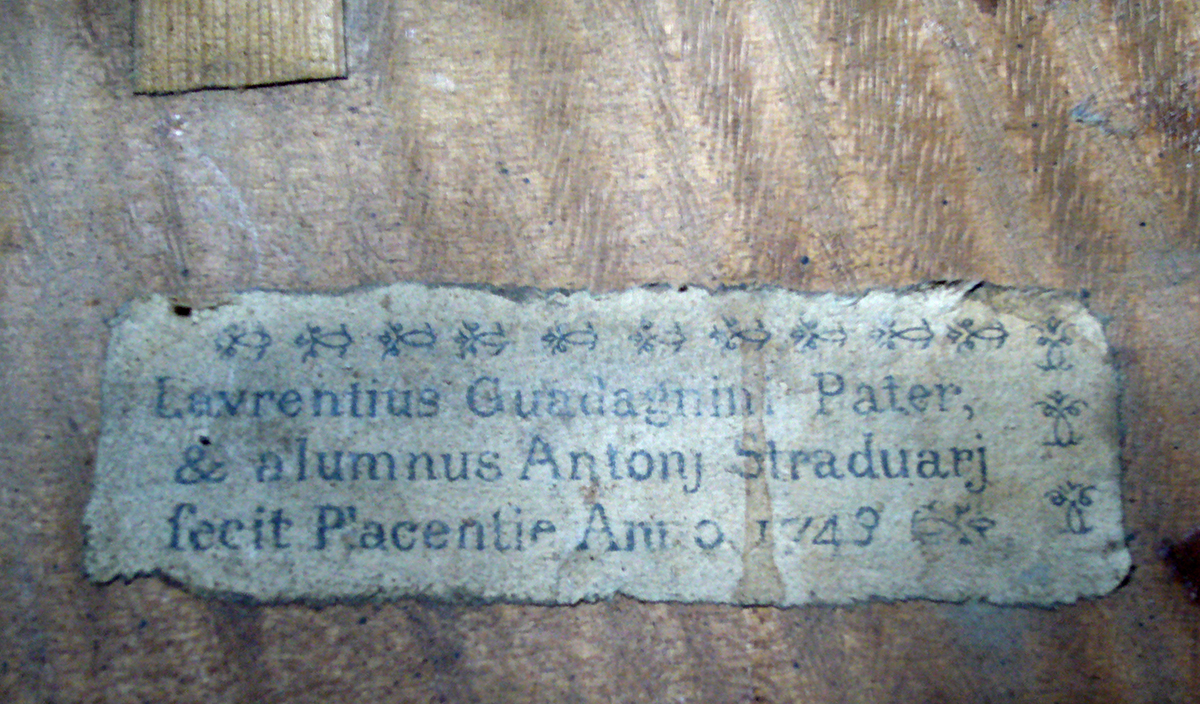 Lavrentius Guadagnini Pater,
& alumnus Antonj Straduarj
fecit Placentie Anno 1743